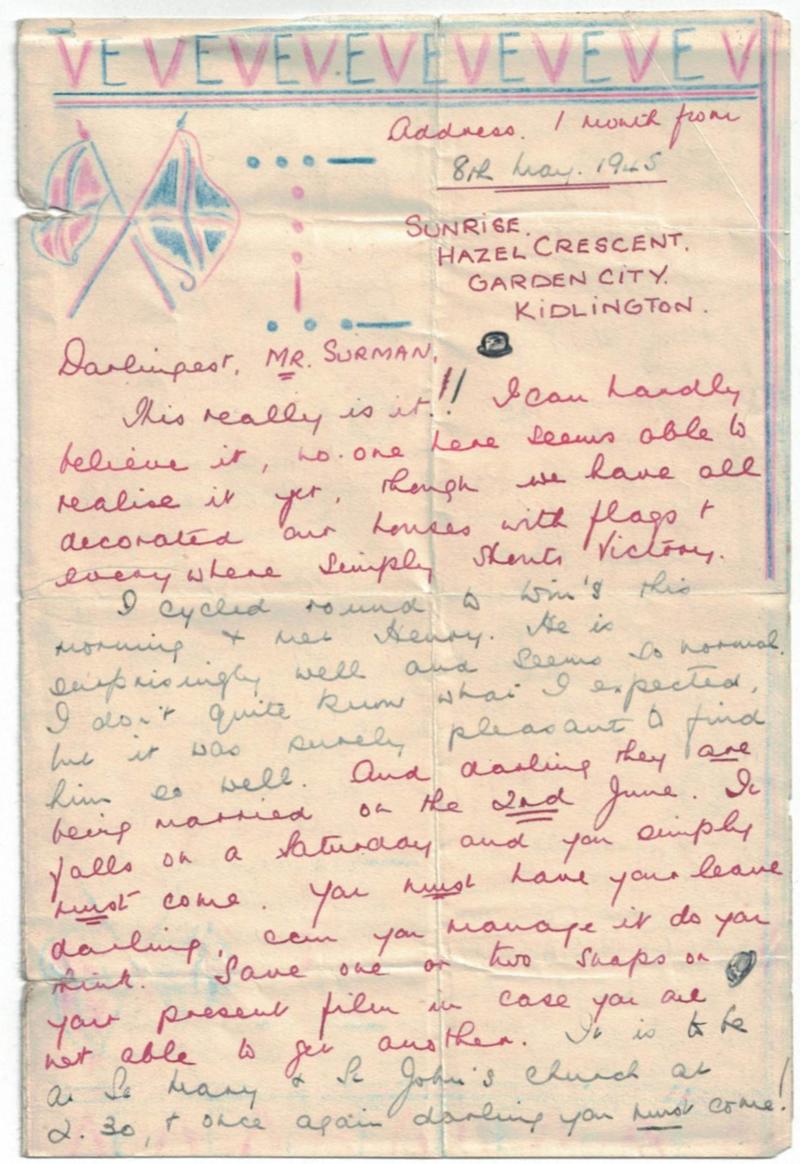 VEVEVEVEVEVEVEV
Address. 1 month from
8th May. 1945
SUNRISE.
HAZEL CRESCENT.
GARDEN CITY.
KIDLINGTON.
Darlingest, MR. SURMAN,
This really is it!! I can hardly
believe it, no-one here seems able to
realise it yet, though we have all
decorated our houses with flags +
everywhere simply shouts Victory.
I cycled round to Win's this
morning + met Henry. He is
surprisingly well and seems so normal.
I don't quite know what I expected,
but it was surely pleasant to find
him so well. And darling they are
being married on the 2nd June. It
falls on a Saturday and you simply
must come. You must have your leave
darling, can you manage it do you
think. Save one or two snaps on
your present film in case you are
not able to get another. It is to be
at St Mary & St John's church at
2.30, + once again darling you must come!